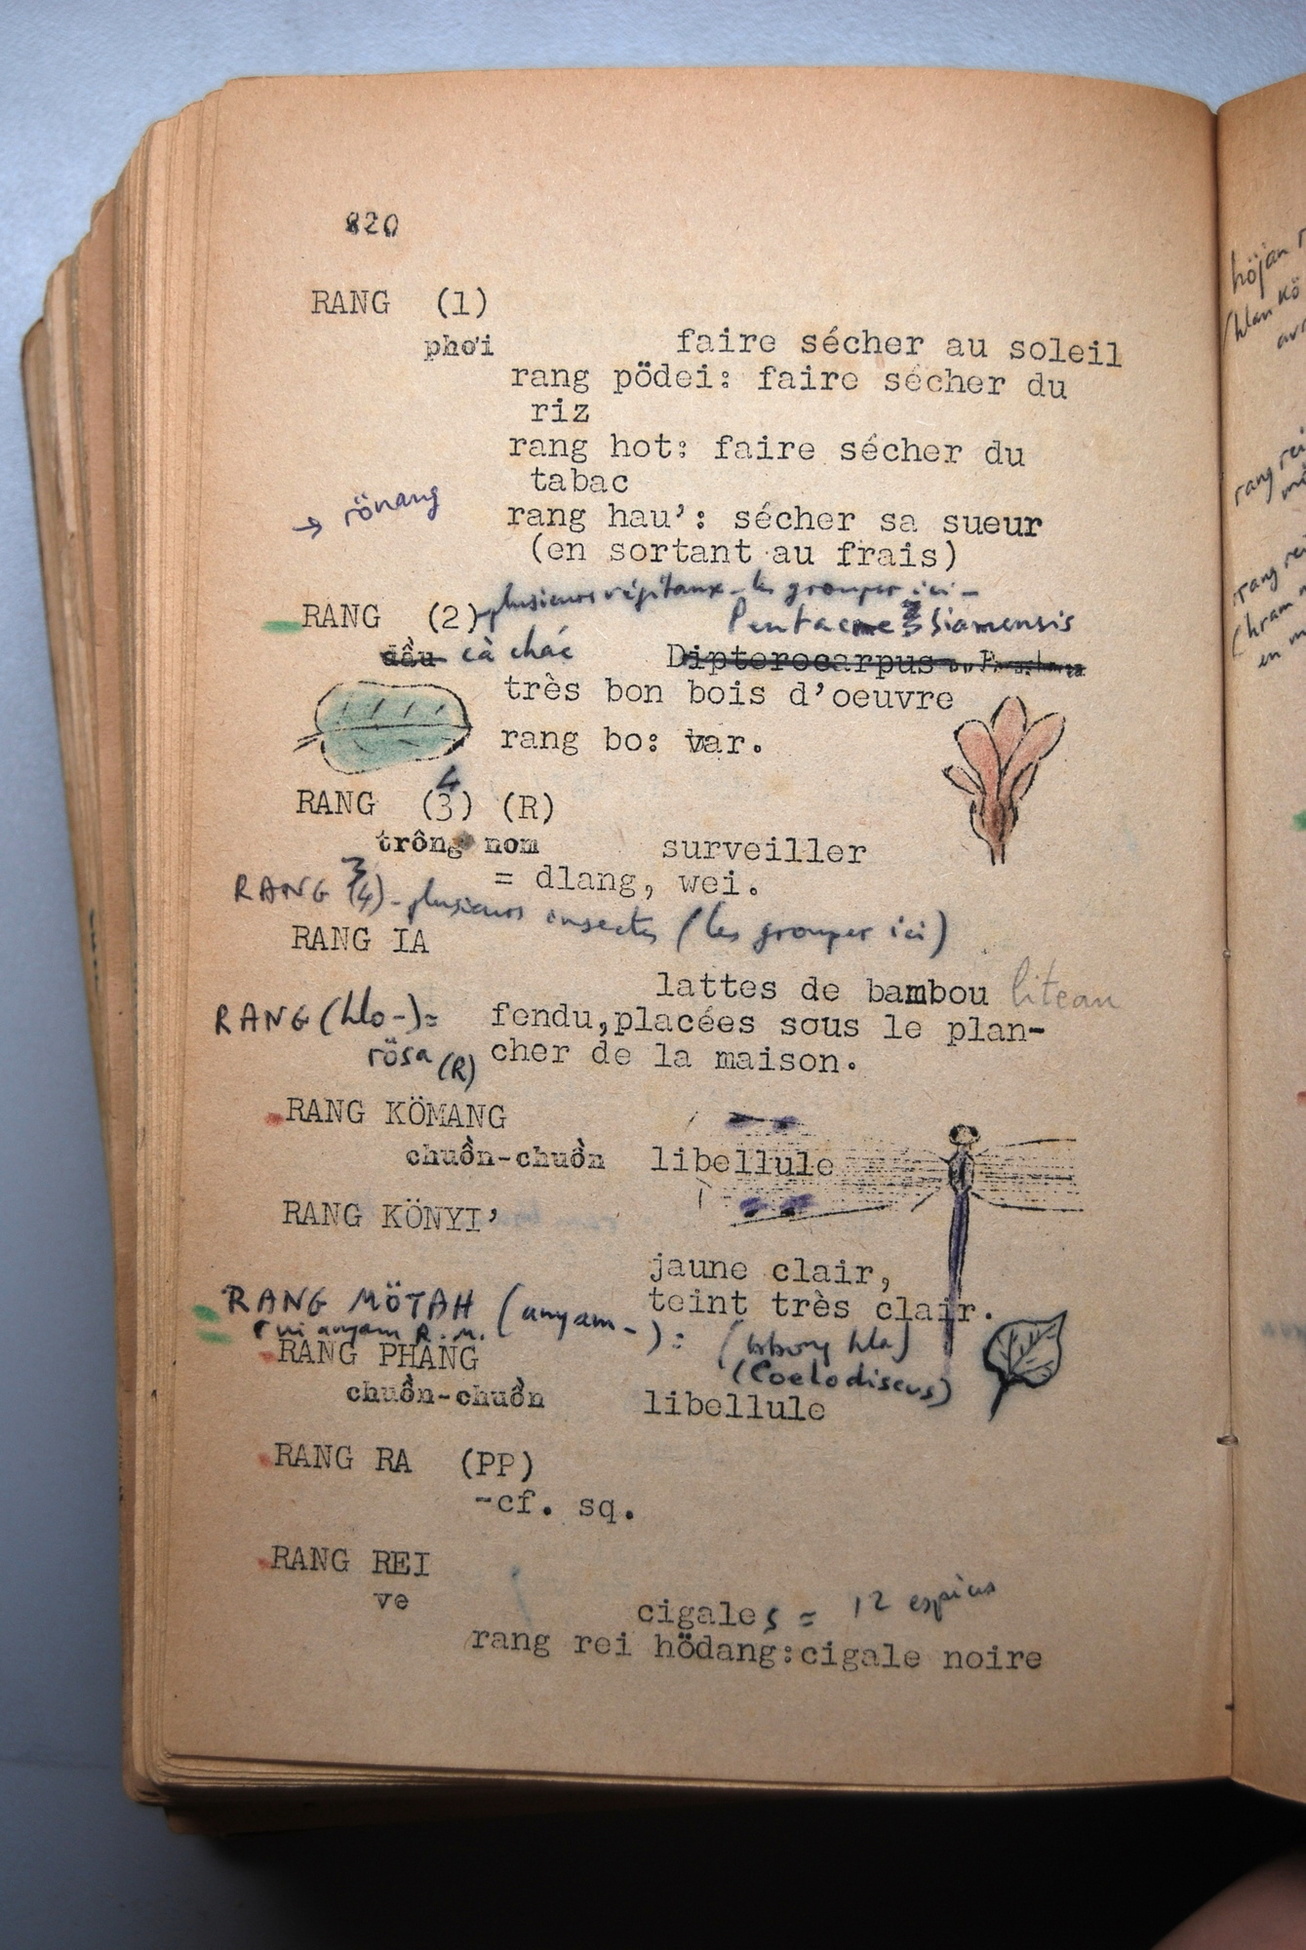 820
RANG (1)
phơi faire sécher au soleil
rang pödei: faire sécher du
riz
rang hot: faire sécher du
tabac
→ rönang
rang hau': sécher sa sueur
(en sortant au frais)
plusieurs végétaux - les grouper ici -
RANG (2)
Pentacme Siamensis
dầu cà chác Dipterocarpus
très bon bois d'oeuvre
rang bo: var.
4
RANG (3) (R)
trông nom surveiller
= dlang, wei.
3
RANG (4) - plusieurs insectes (les grouper ici)
RANG IA
lattes de bambou liteau
RANG (hlo-) =
fendu, placées sous le plan-
rösa (R)
cher de la maison.
RANG KÖMANG
chuồn-chuồn libellule
RANG KÖNYI'
jaune clair,
teint très clair.
RANG MÖTAH (anyam-):
rui anyam R. M.
hla)
(Coelodiscus)
RANG PHANG
chuồn-chuồn libellule
RANG RA (PP)
-cf. sq.
RANG REI
ve cigales = 12 espèces
rang rei hödang: cigale noire
höjan
(hlan kö
rang rei
rang rei
(hram
en